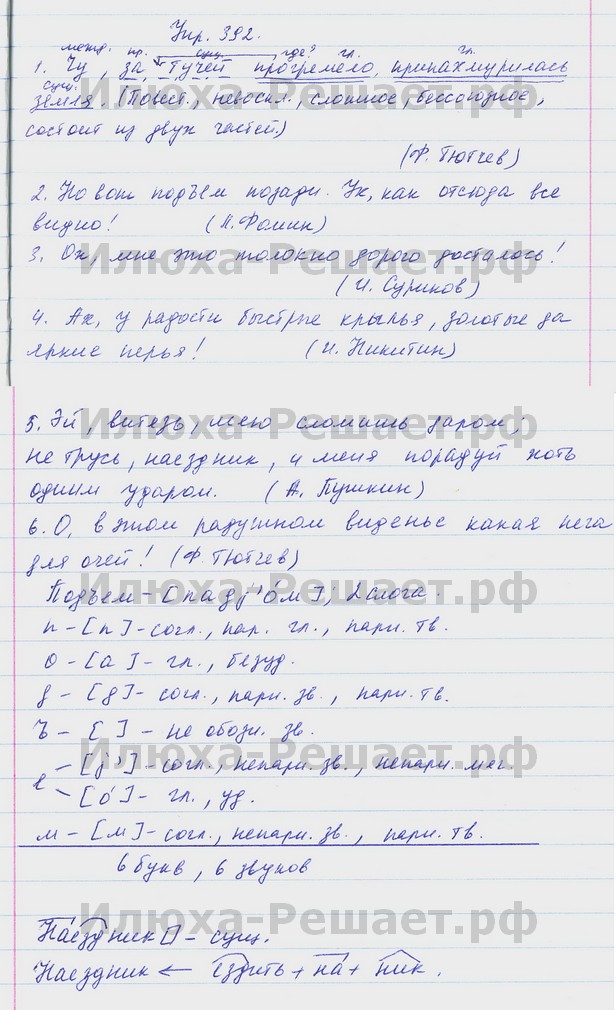 Упр. 392.
межд. пр. сущ. где? гл. гл.
1. Чу, за тучей прогремело, принахмурилась
сущ.
земля. (Повест., невоскл., сложное, бессоюзное,
состоит из двух частей.)
(Ф. Тютчев)
2. Но вот подъём позади. Ух, как отсюда все
видно! (Н. Фомин)
3. Ох, мне это толокно дорого досталось!
Илюха-Решает.рф
(И. Суриков)
4. Ах, у радости быстрые крылья, золотые да
яркие перья! (И. Никитин)
5. Эй, витязь, мою сломишь даром;
Илюха-Решает.рф
не трусь, наездник, и меня порадуй хоть
одним ударом. (А. Пушкин)
6. О, в этом радужном виденье какая нега
для очей! (Ф. Тютчев)
Подъем – [падj'ом]; 2 слога.
Илюха-Решает.рф
п – [п] – согл., пар. гл., парн. тв.
о – [а] – гл., безуд.
д – [д] – согл., парн. зв., парн. тв.
ъ – [ ] – не обозн. зв.
Илюха-Решает.рф
е – [j'] – согл., непарн. зв., непарн. мяг.
– [о́] – гл., уд.
м – [м] – согл., непарн. зв., парн. тв.
6 букв, 6 звуков
Илюха-Решает.рф
Наездник – сущ.
Наездник ← ездить + на + ник.